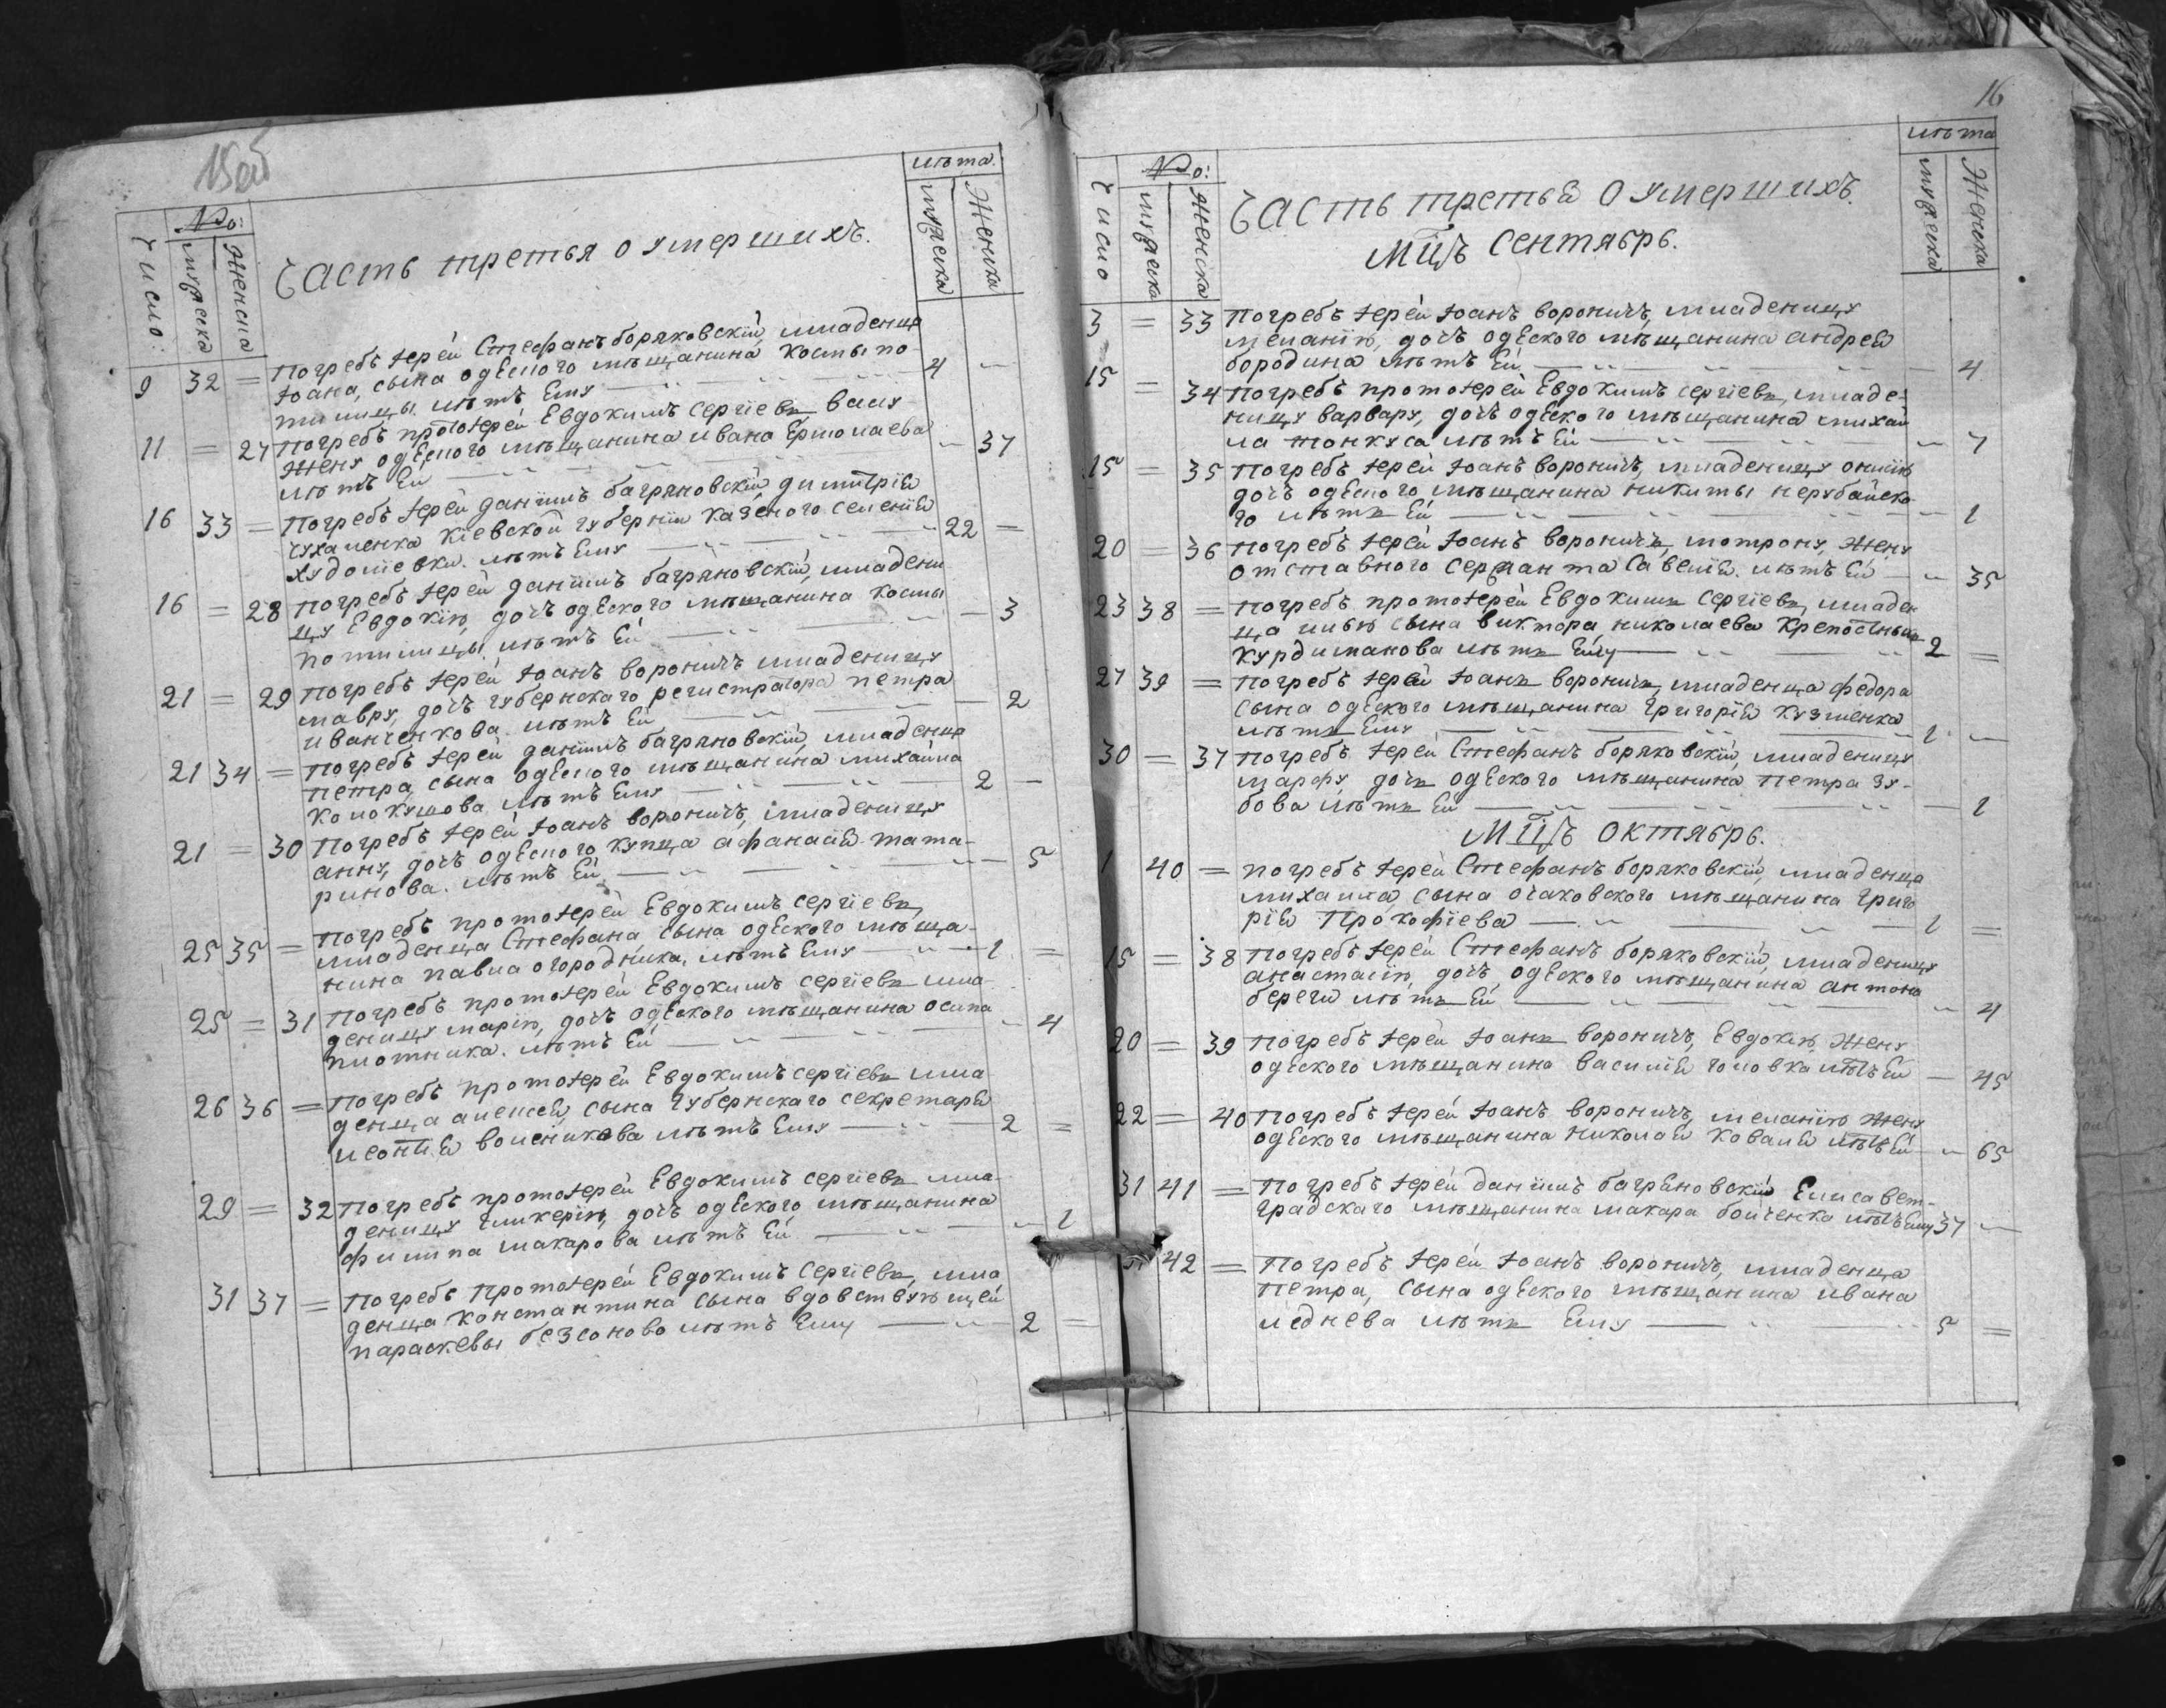 15об
№: лѣта.
Число: мужеска Женска Часть третья о умершихъ. мужеска Женска
9 32 = Погребъ іерей Стефанъ боряковскій, младенца
іоана, сына одеского мѣщанина Космы по-
тилицы лѣтъ Ему 4 —
11 = 27 Погребъ протоіерей Евдокимъ Сергіевъ, васу
жену одеского мѣщанина ивана Ермолаева
лѣтъ Ей — 37
16 33 = Погребъ іерей даніилъ багряновскій, димитрія
сухаленка Кіевской губерніи казеного селенія
худоліевки. лѣтъ Ему 22 =
16 = 28 Погребъ іерей даніилъ багряновскій, младени
цу Евдокію, дочъ одеского мѣщанина Космы
потилицы, лѣтъ Ей — 3
21 = 29 Погребъ іерей іоанъ вороничъ младеницу
мавру, дочъ губернскаго регистратора петра
иванченкова. лѣтъ Ей — 2
21 34 = Погребъ іерей даніилъ багряновскій, младенца
петра, сына одеского мѣщанина михайла
колокушова лѣтъ Ему 2 —
21 = 30 Погребъ іерей іоанъ вороничъ, младеницу
анну, дочъ одеского купца афанасія тата-
ринова. лѣтъ Ей — 5
25 35 = Погребъ протоіерей Евдокимъ Сергіевъ,
младенца Стефана сына одеского мѣща-
нина павла огородника, лѣтъ Ему 1 =
25 = 31 Погребъ протоіерей Евдокимъ Сергіевъ мла-
деницу марію, дочъ одеского мѣщанина осипа
плотника. лѣтъ Ей — 4
26 36 = Погребъ протоіерей Евдокимъ Сергіевъ мла
денца алексея, сына губернскаго секретаря
леонтія воленикова лѣтъ Ему 2 =
29 = 32 Погребъ протоіерей Евдокимъ Сергіевъ мла-
деницу гликерію, дочъ одеского мѣщанина
филипа макарова лѣтъ Ей — 1
31 37 = Погребъ протоіерей Евдокимъ Сергіевъ, мла
денца Константина сына вдовствующей
параскевы безсоново лѣтъ Ему 2 =
16
№: лѣта
Число мужеска Женска Часть третья О умершихъ. мужеска Женска
мцъ Сентябрь.
3 = 33 Погребъ іерей іоанъ вороничъ, младеницу
меланію, дочъ одеского мѣщанина андрея
бородина лѣтъ Ей — 4
15 = 34 Погребъ протоіерей Евдокимъ Сергіевъ, младе-
ницу варвару, дочъ одеского мѣщанина михай
ла тонкуса лѣтъ Ей — 7
15 = 35 Погребъ іерей іоанъ вороничъ, младеницу
дочъ одеского мѣщанина никиты нерубайско
го лѣтъ Ей — 1
20 = 36 Погребъ іерей іоанъ вороничъ, мотрону, жену
отставного сержанта Савелія. лѣтъ Ей — 35
23 38 = Погребъ протоіерей Евдокимъ Сергіевъ, младен
ца илью сына виктора николаева крепостныхъ
курдиманова лѣтъ Ему 2 =
27 39 = Погребъ іерей іоанъ вороничъ, младенца федора
сына одеского мѣщанина Григорія Кузменка
лѣтъ Ему 1 —
30 = 37 Погребъ іерей Стефанъ боряковскій, младеницу
марфу дочъ одеского мѣщанина Петра Зу-
бова лѣтъ Ей — 1
мцъ октябрь.
1 40 = погребъ іерей Стефанъ боряковскій, младенца
михаила, сына очаковского мѣщанина григо
рія Прокофіева 1 =
15 = 38 Погребъ іерей Стефанъ боряковскій, младеницу
анастасію, дочъ, одеского мѣщанина антона
береги лѣтъ Ей — 4
20 = 39 Погребъ іерей іоанъ вороничъ, Евдокію, жену
одеского мѣщанина василія головка лѣтъ Ей — 45
22 = 40 Погребъ іерей іоанъ вороничъ, меланію жену
одеского мѣщанина николая Коваля лѣтъ Ей — 65
31 41 = Погребъ іерей даніилъ багряновскій Елисавет-
градскаго мѣщанина макара бойченка лѣтъ Ему 37 —
42 = Погребъ іерей іоанъ вороничъ, младенца
петра, сына одеского мѣщанина ивана
леднева лѣтъ Ему 5 =